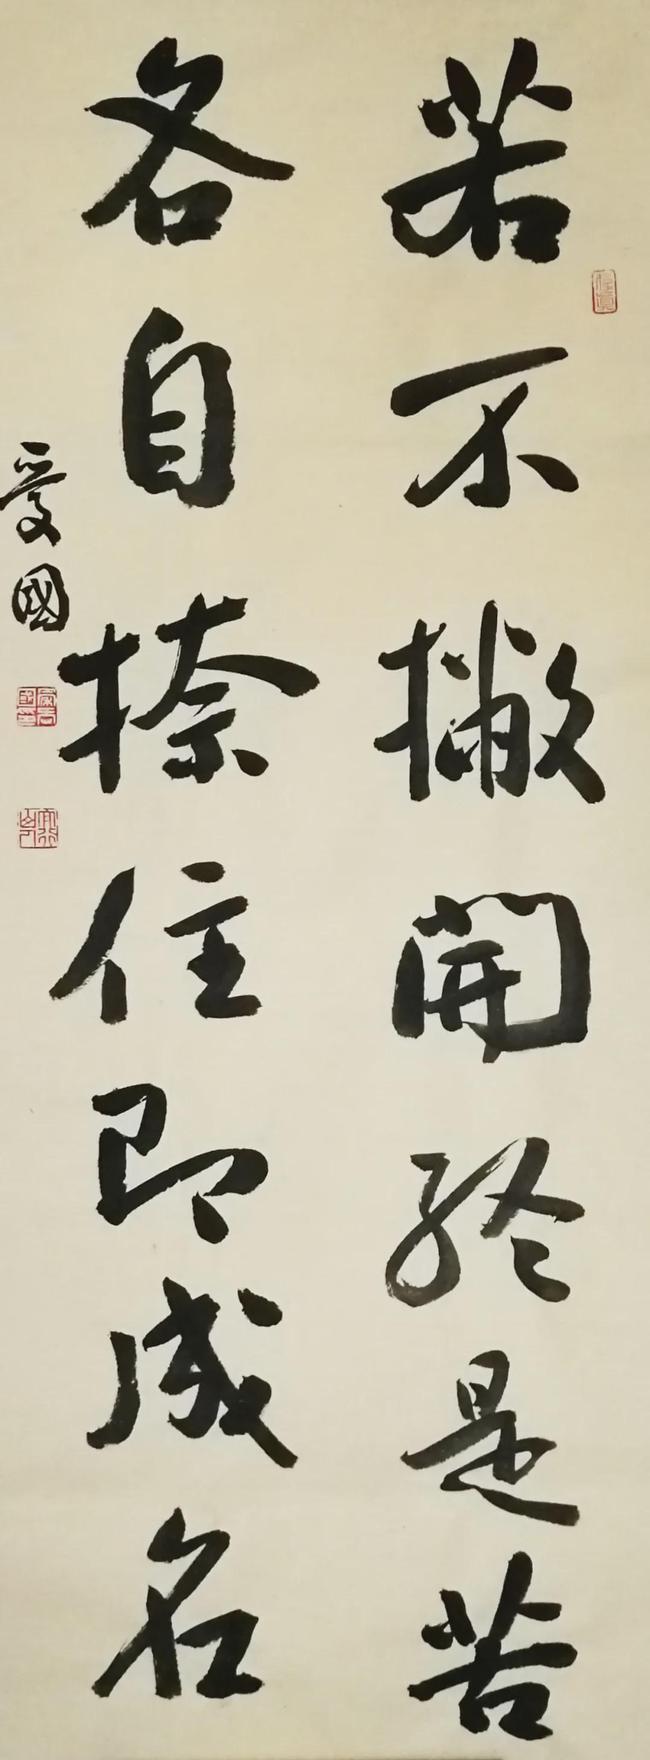 若不撇開終是苦
各自捺住即成名
愛國